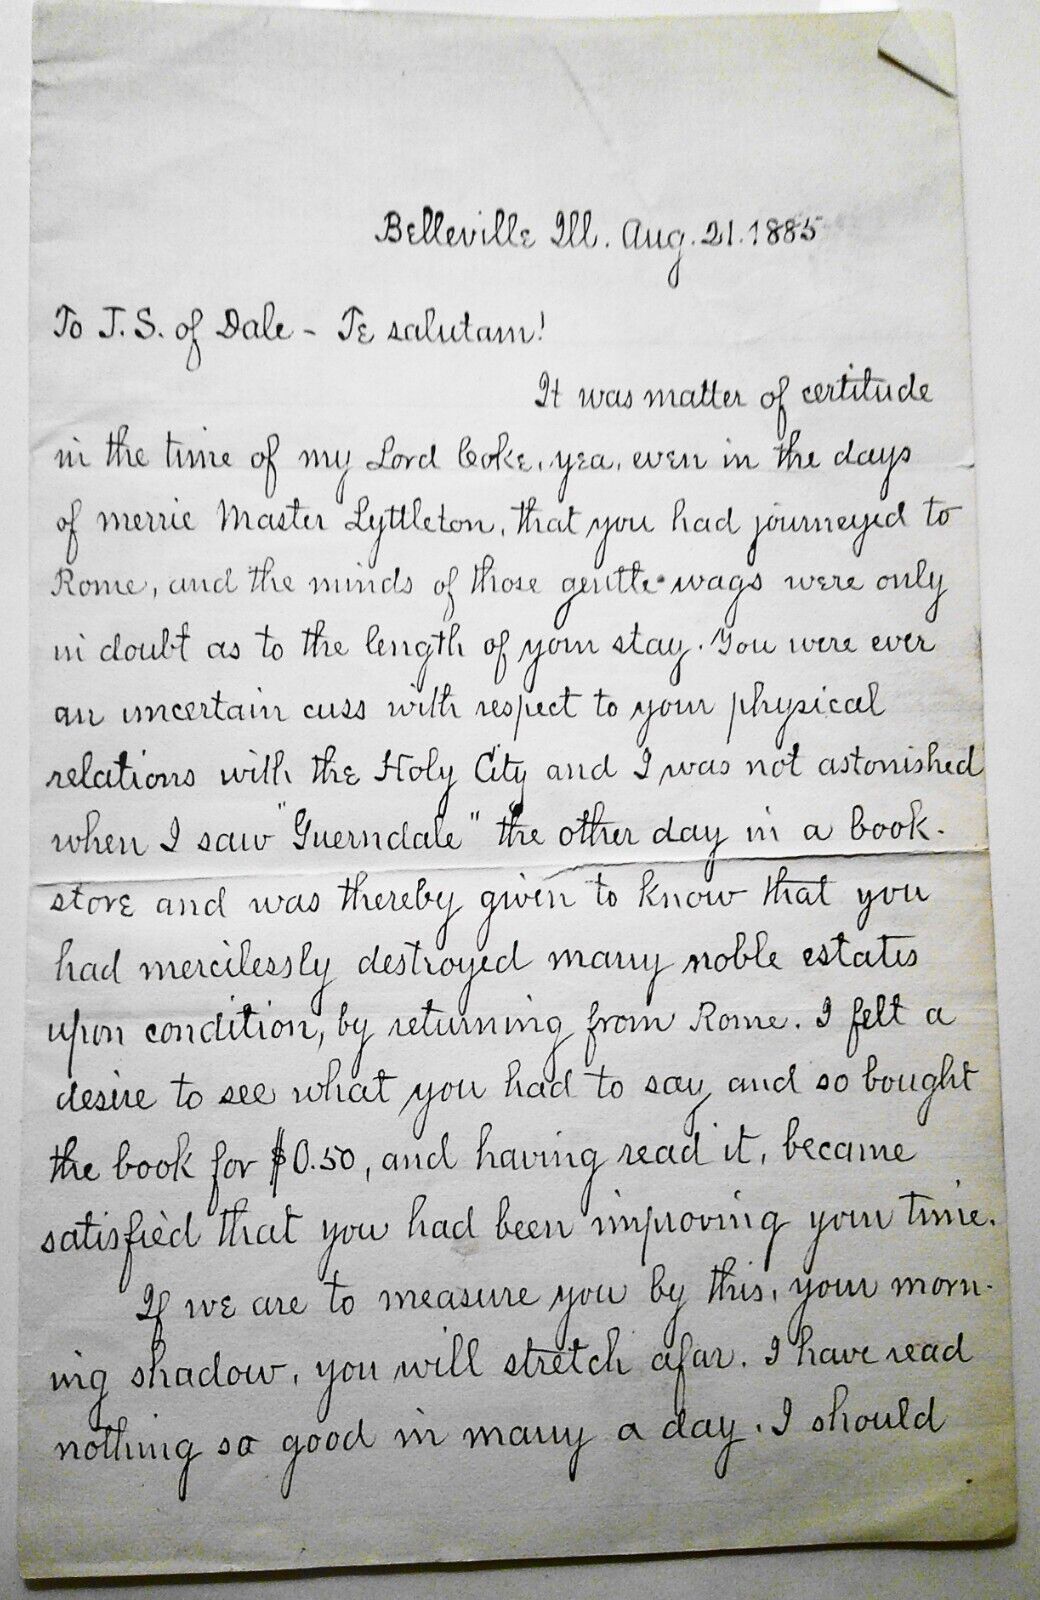 Belleville Ill. Aug. 21. 1885
To J. S. of Dale - Te salutam!
It was matter of certitude
in the time of my Lord Coke, yea, even in the days
of merrie Master Lyttleton, that you had journeyed to
Rome, and the minds of those gentle wags were only
in doubt as to the length of your stay. You were ever
an uncertain cuss with respect to your physical
relations with the Holy City and I was not astonished
when I saw "Guerndale" the other day in a book-
store and was thereby given to know that you
had mercilessly destroyed many noble estates
upon condition, by returning from Rome. I felt a
desire to see what you had to say and so bought
the book for $0.50, and having read it, became
satisfied that you had been improving your time.
If we are to measure you by this, your morn-
ing shadow, you will stretch afar. I have read
nothing so good in many a day. I should